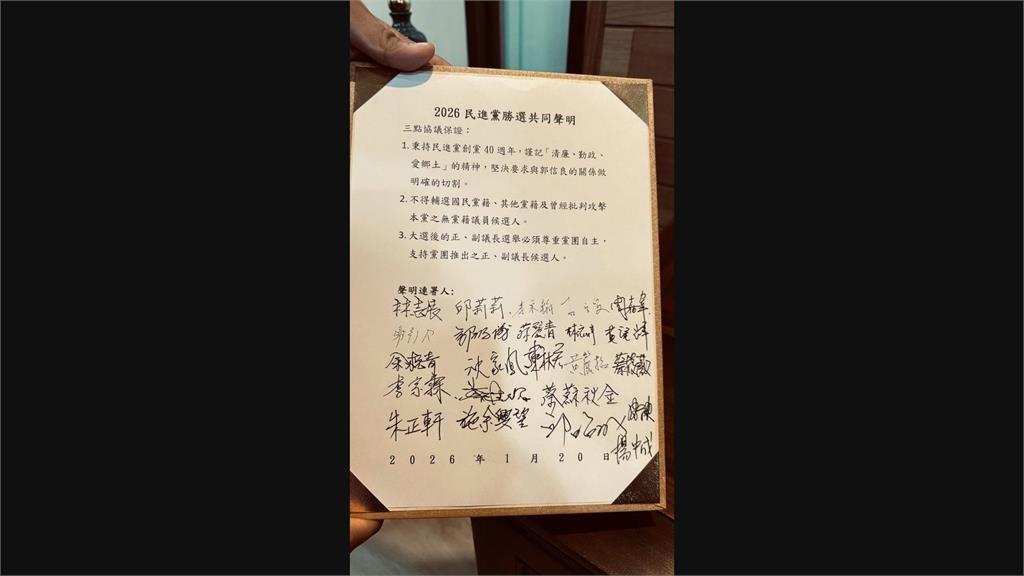 2026 民進黨勝選共同聲明
三點協議保證：
1. 秉持民進黨創黨 40 週年，謹記「清廉、勤政、
愛鄉土」的精神，堅決要求與郭信良的關係做
明確的切割。
2. 不得輔選國民黨籍、其他黨籍及曾經批判攻擊
本黨之無黨籍議員候選人。
3. 大選後的正、副議長選舉必須尊重黨團自主，
支持黨團推出之正、副議長候選人。
聲明連署人：
林志展 邱莉莉 周嘉韋
蔡筱薇
余柷青
李宗霖 蔡蘇秋金
朱正軒 施余興望
楊中成
2026 年 1 月 20 日